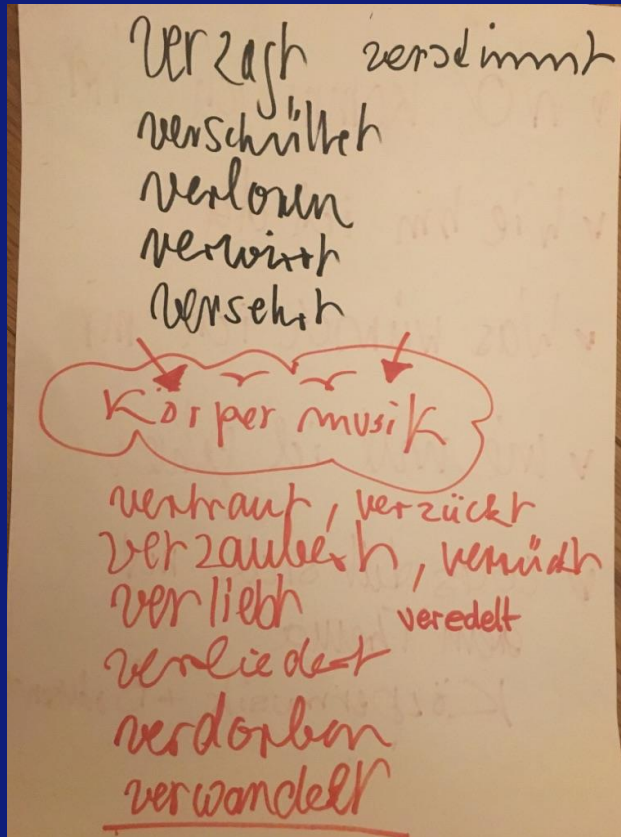 verzagt verstimmt
verschüttet
verloren
verwirrt
versehrt
Körper musik
vertraut, verzückt
verzaubert, verrückt
verliebt veredelt
verliedert
verdorben
verwandelt